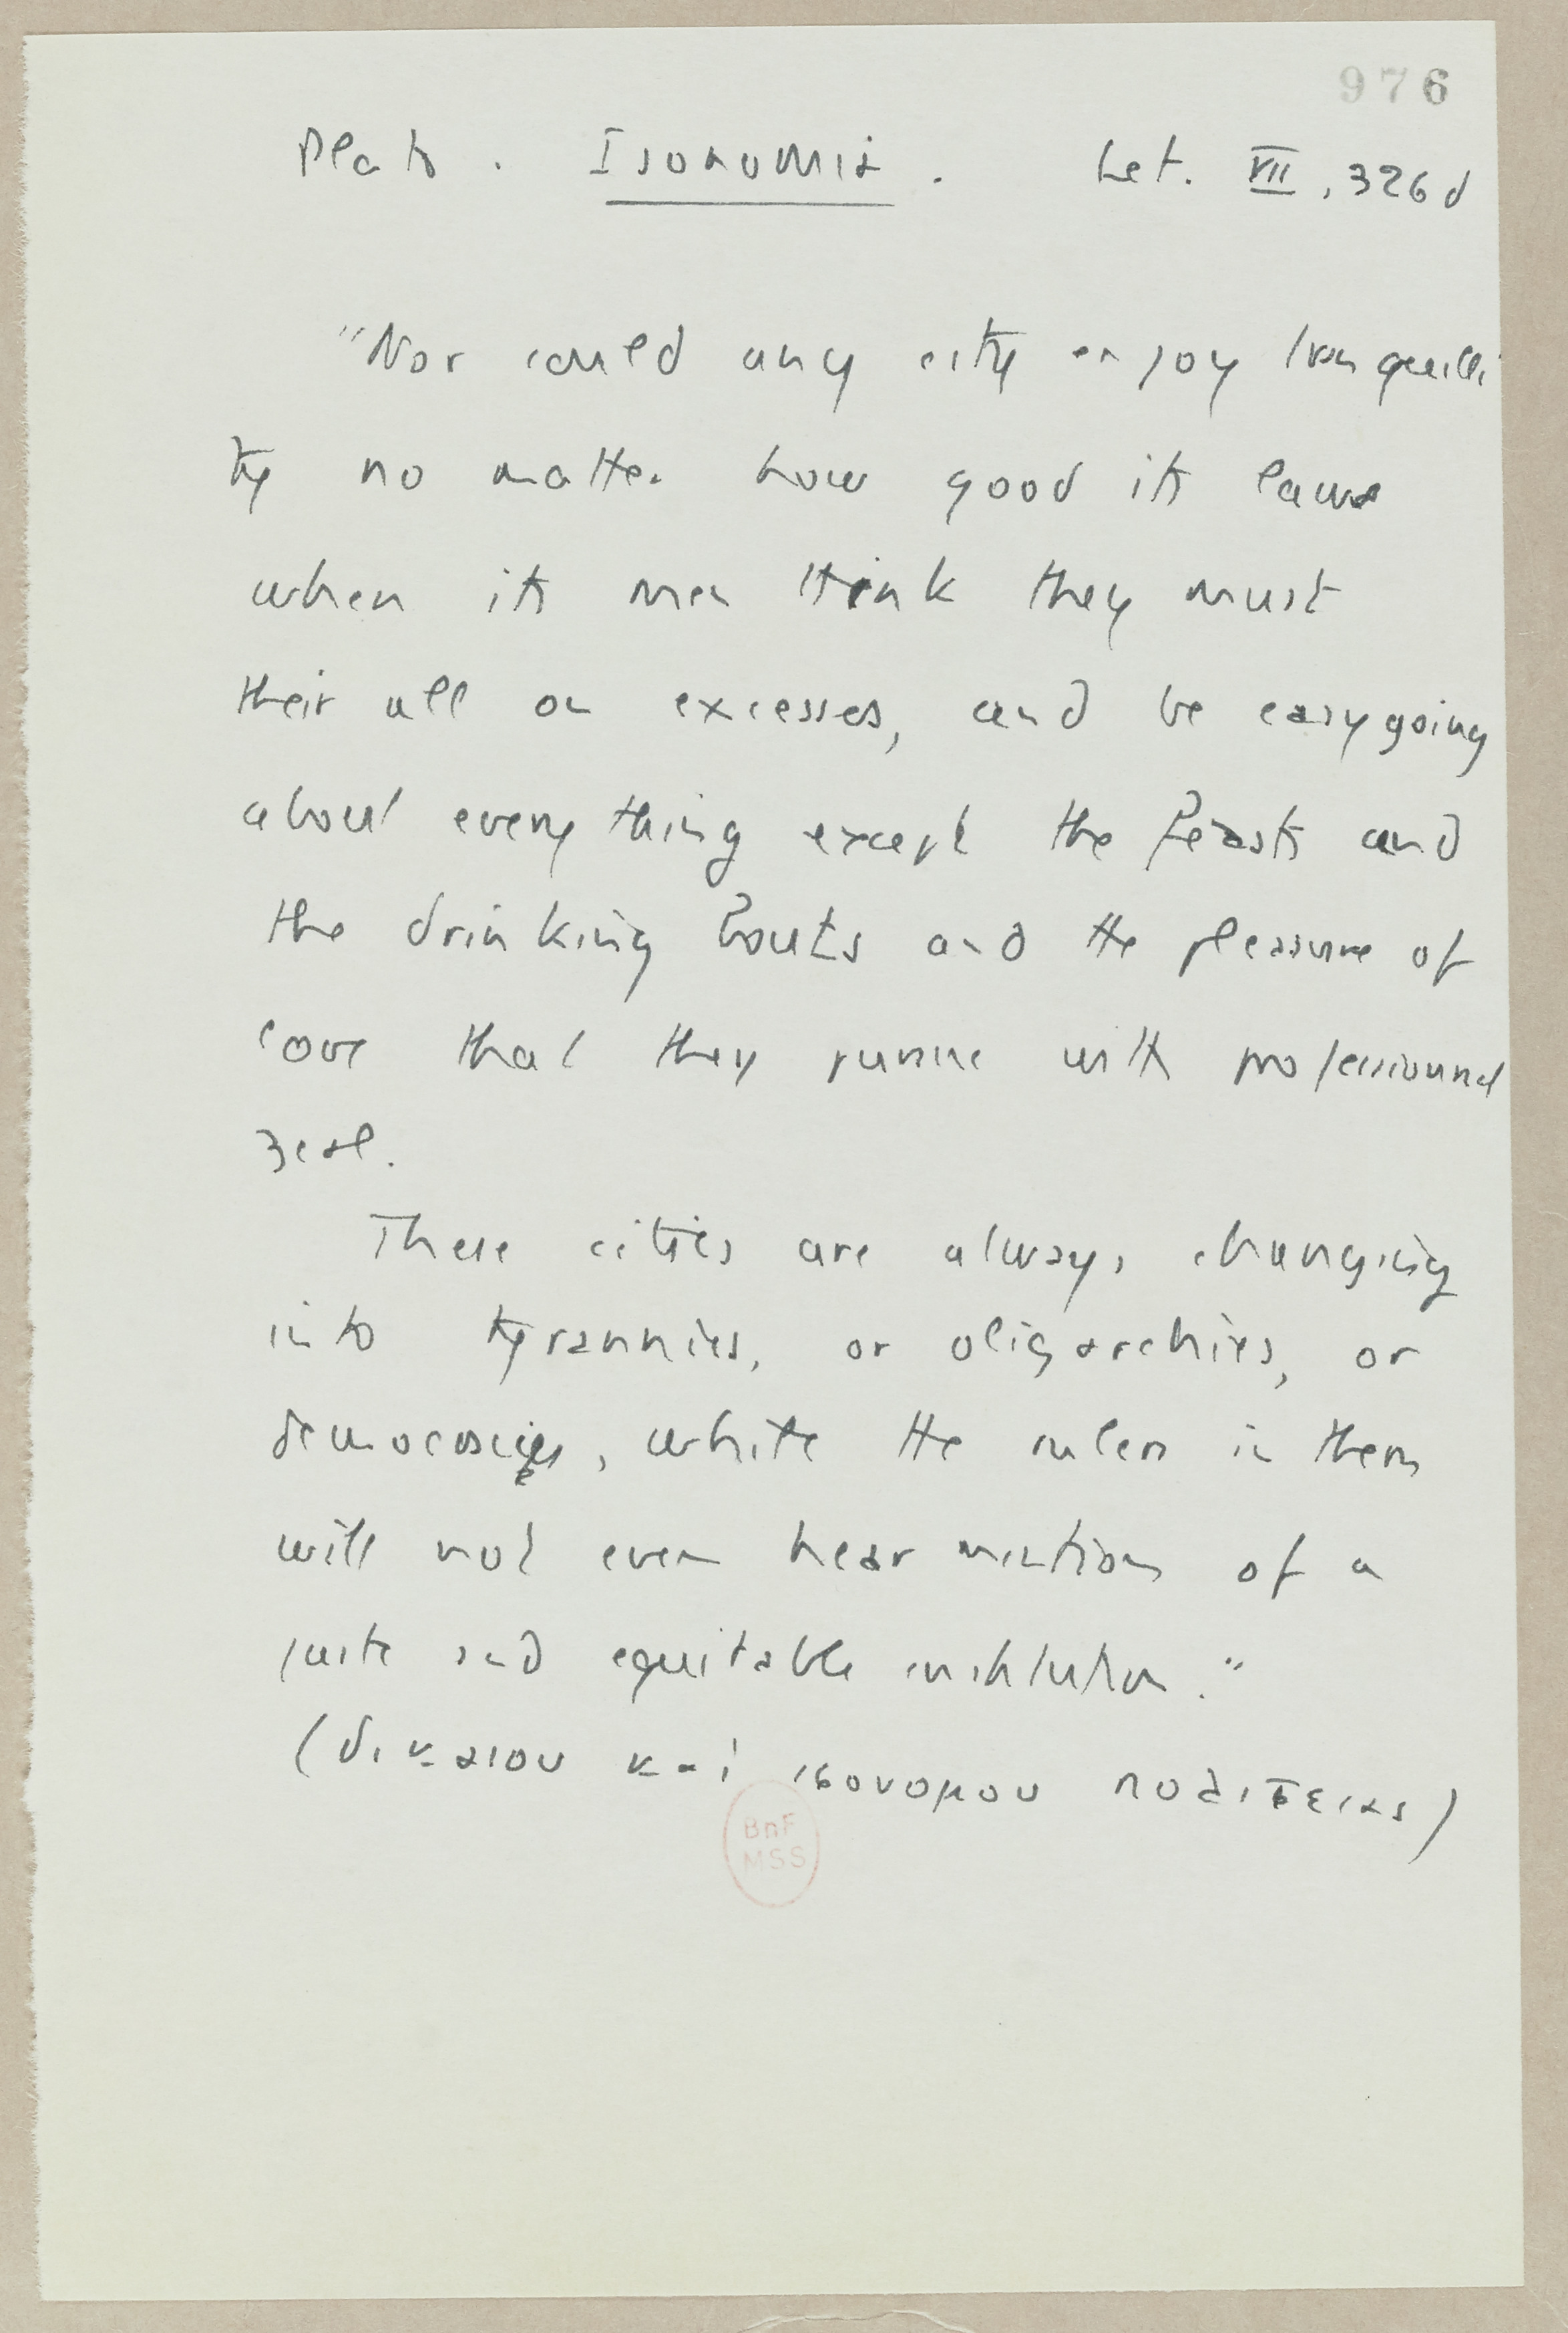 976
Plato. Isonomia. Let. VII, 326d
"Nor could any city enjoy tranquilli
ty no matter how good its laws
when its men think they must
their all on excesses, and be easygoing
about everything except the feasts and
the drinking bouts and the pleasure of
love that they pursue with professionnal
zeal.
These cities are always changing
into tyrannies, or oligarchies, or
democracies, while the rulers in them
will not even hear mention of a
juste and equitable institution."
(δικαιου και ισονομου πολιτειας)
BnF
MSS